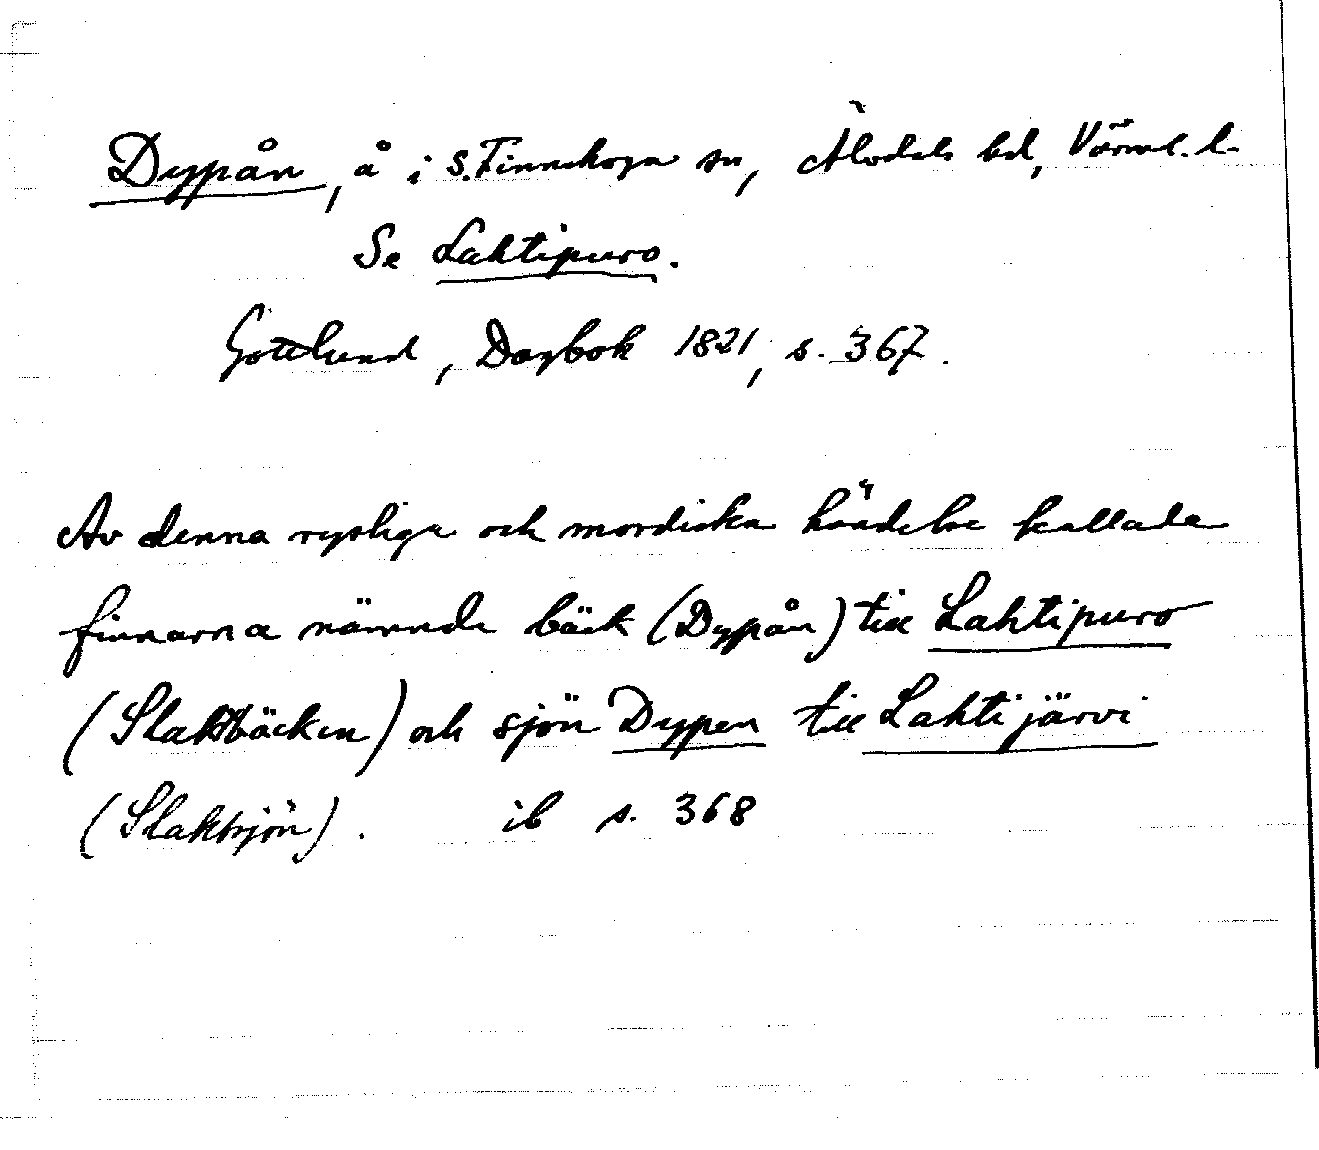 Dypån, å i S. Finnskoga sn, Älvdals hd, Värml. l.
Se Lahtipuro.
Gottlund, Dagbok 1821, s. 367.
Av denna rysliga och mordiska händelse kallade
finnarna nämnde bäck (Dypån) till Lahtipuro
(Slaktbäcken) och sjön Dypen till Lahtijärvi
(Slaktsjön). ib s. 368